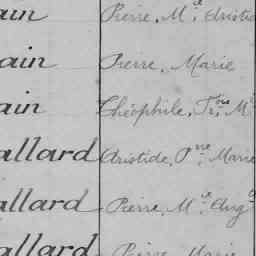 ain Pierre, Mel. Aristid
ain Pierre, Marie
ain Théophile, Fçois M
allard Aristide, Pre Marie
allard Pierre, Mel Aug
allard Pierre, Marie